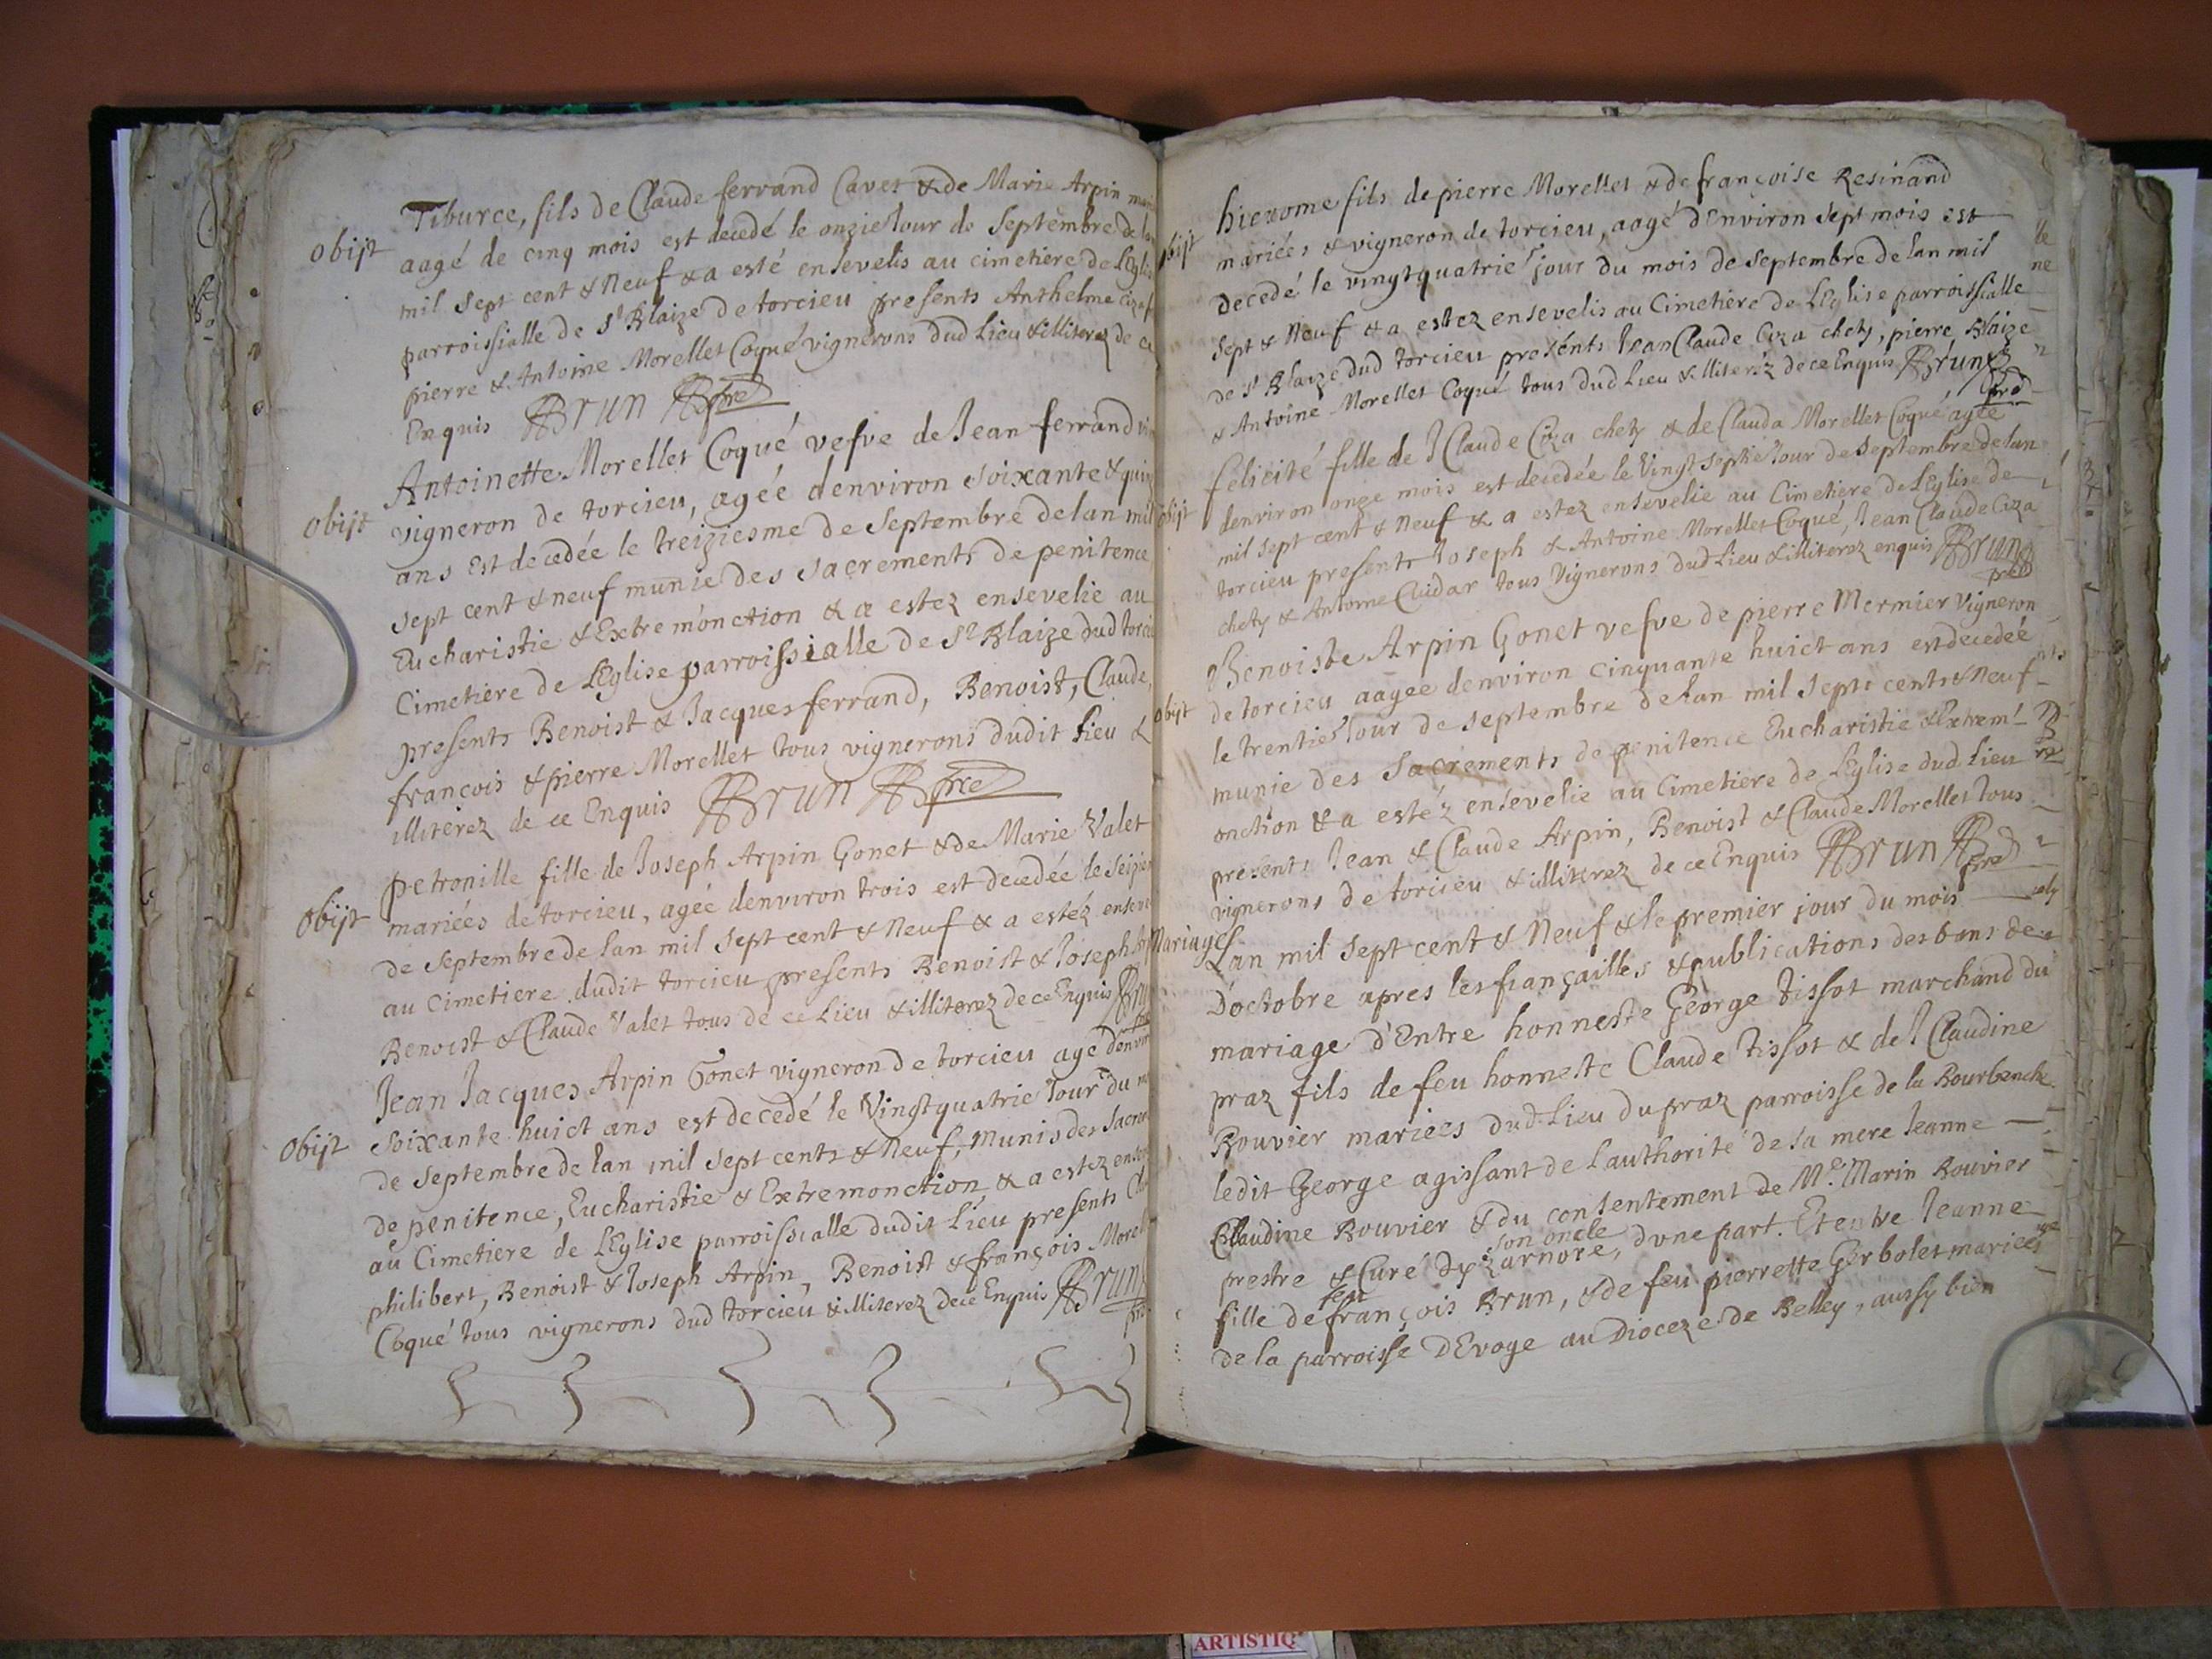 Tiburce, fils de Claude ferrand Cavet & de Marie Arpin
Obijt
aagé de cinq mois est decedé le onzie Jour de Septembre de
mil Sept cent & Neuf & a esté ensevelis au cimetiere de
parroissialle de St Blaize de torcieu presents Anthelme
pierre & Antoine Morellet Coqué vignerons dud Lieu & illiterez de ce
Enquis Brun pre
Antoinette Morellet Coqué vefve de Jean ferrand
Obijt
vigneron de torcieu, agée denviron soixante &
ans est decedée le treiziesme de Septembre de lan mil
sept cent & neuf munie des sacrements de penitence
Eucharistie & Extremonction & a estez ensevelie au
Cimetiere de LEglise parroissialle de St Blaize dud
presents Benoist & Jacques ferrand, Benoist, Claude,
françois & pierre Morellet tous vignerons dudit Lieu &
illiterez de ce Enquis Brun pre
petronille fille de Joseph Arpin Gonet & de Marie Valet
Obijt
mariées de torcieu, agée denviron trois est decedée le
de Septembre de lan mil Sept cent & Neuf & a estéz
au Cimetiere dudit torcieu presents Benoist & Joseph
Benoist & Claude Valet tous de ce Lieu & illiterez de ce Enquis
Jean Jacques Arpin Gonet vigneron de torcieu agé
Obijt
Soixante huict ans est decedé le Vingtquatrie Jour du
de Septembre de lan mil Sept cents & Neuf, Munis des
de penitence, Eucharistie & Extremonction & a estez
au Cimetiere de LEglise parroissialle dudit Lieu presents
philibert, Benoist & Joseph Arpin, Benoist & françois
Coqué tous vignerons dud torcieu & illiterez de ce Enquis Brun
hierome fils de pierre Morellet & de françoise Resinand
mariées & vigneron de torcieu, aagé denviron Sept mois est
decedé le vingtquatrie jour du mois de Septembre de lan mil
Sept & Neuf & a estez ensevelis au Cimetiere de LEglise parroissialle
de St Blaize dud torcieu presents Jean Claude Ciza chety, pierre Blaize
& Antoine Morellet Coqué tous dud Lieu & illiteréz de ce Enquis Brun
pre
felicité fille de J Claude Ciza chety & de Clauda Morellet Coqué agée
denviron onze mois est decedée le Vingt Septie Jour de Septembre de lan
mil Sept cent & Neuf & a estez ensevelie au Cimetiere de LEglise de
torcieu presents Joseph & Antoine Morellet Coqué, Jean Claude Ciza
chety & Antoine Cuidar tous Vignerons dud Lieu & illiterez enquis Brun
pre
Benoiste Arpin Gonet vefve de pierre Mermier Vigneron
obijt
de torcieu aagee denviron cinquante huict ans est decedée
le trentie Jour de septembre de lan mil Sept cents & Neuf
munie des Sacrements de penitence Eucharistie & Extrem
onction & a estéz ensevelie au Cimetiere de LEglise dud Lieu
presents Jean & Claude Arpin, Benoist & Claude Morellet tous
vignerons de torcieu & illiterez de ce Enquis Brun pre
Mariages
Lan mil Sept cent & Neuf & le premier jour du mois
Doctobre apres les françailles & publications des bans de
mariage d'Entre honneste George Tissot marchand du
praz fils de feu honneste Claude Tissot & de J Claudine
Bouvier mariées dud Lieu du praz parroisse de la Bourbenche
ledit George agissant de Lauthorité de sa mere Jeanne
Claudine Bouvier & du consentement de Me Marin Bouvier
son oncle
prestre & Curé Dyzarnore, dvne part. Et entre Jeanne
feu
fille de françois Brun, & de feu pierrette Gerbolet mariées
de la parroisse DEvoge au Dioceze de Belley, aussy bien
ARTISTIQ